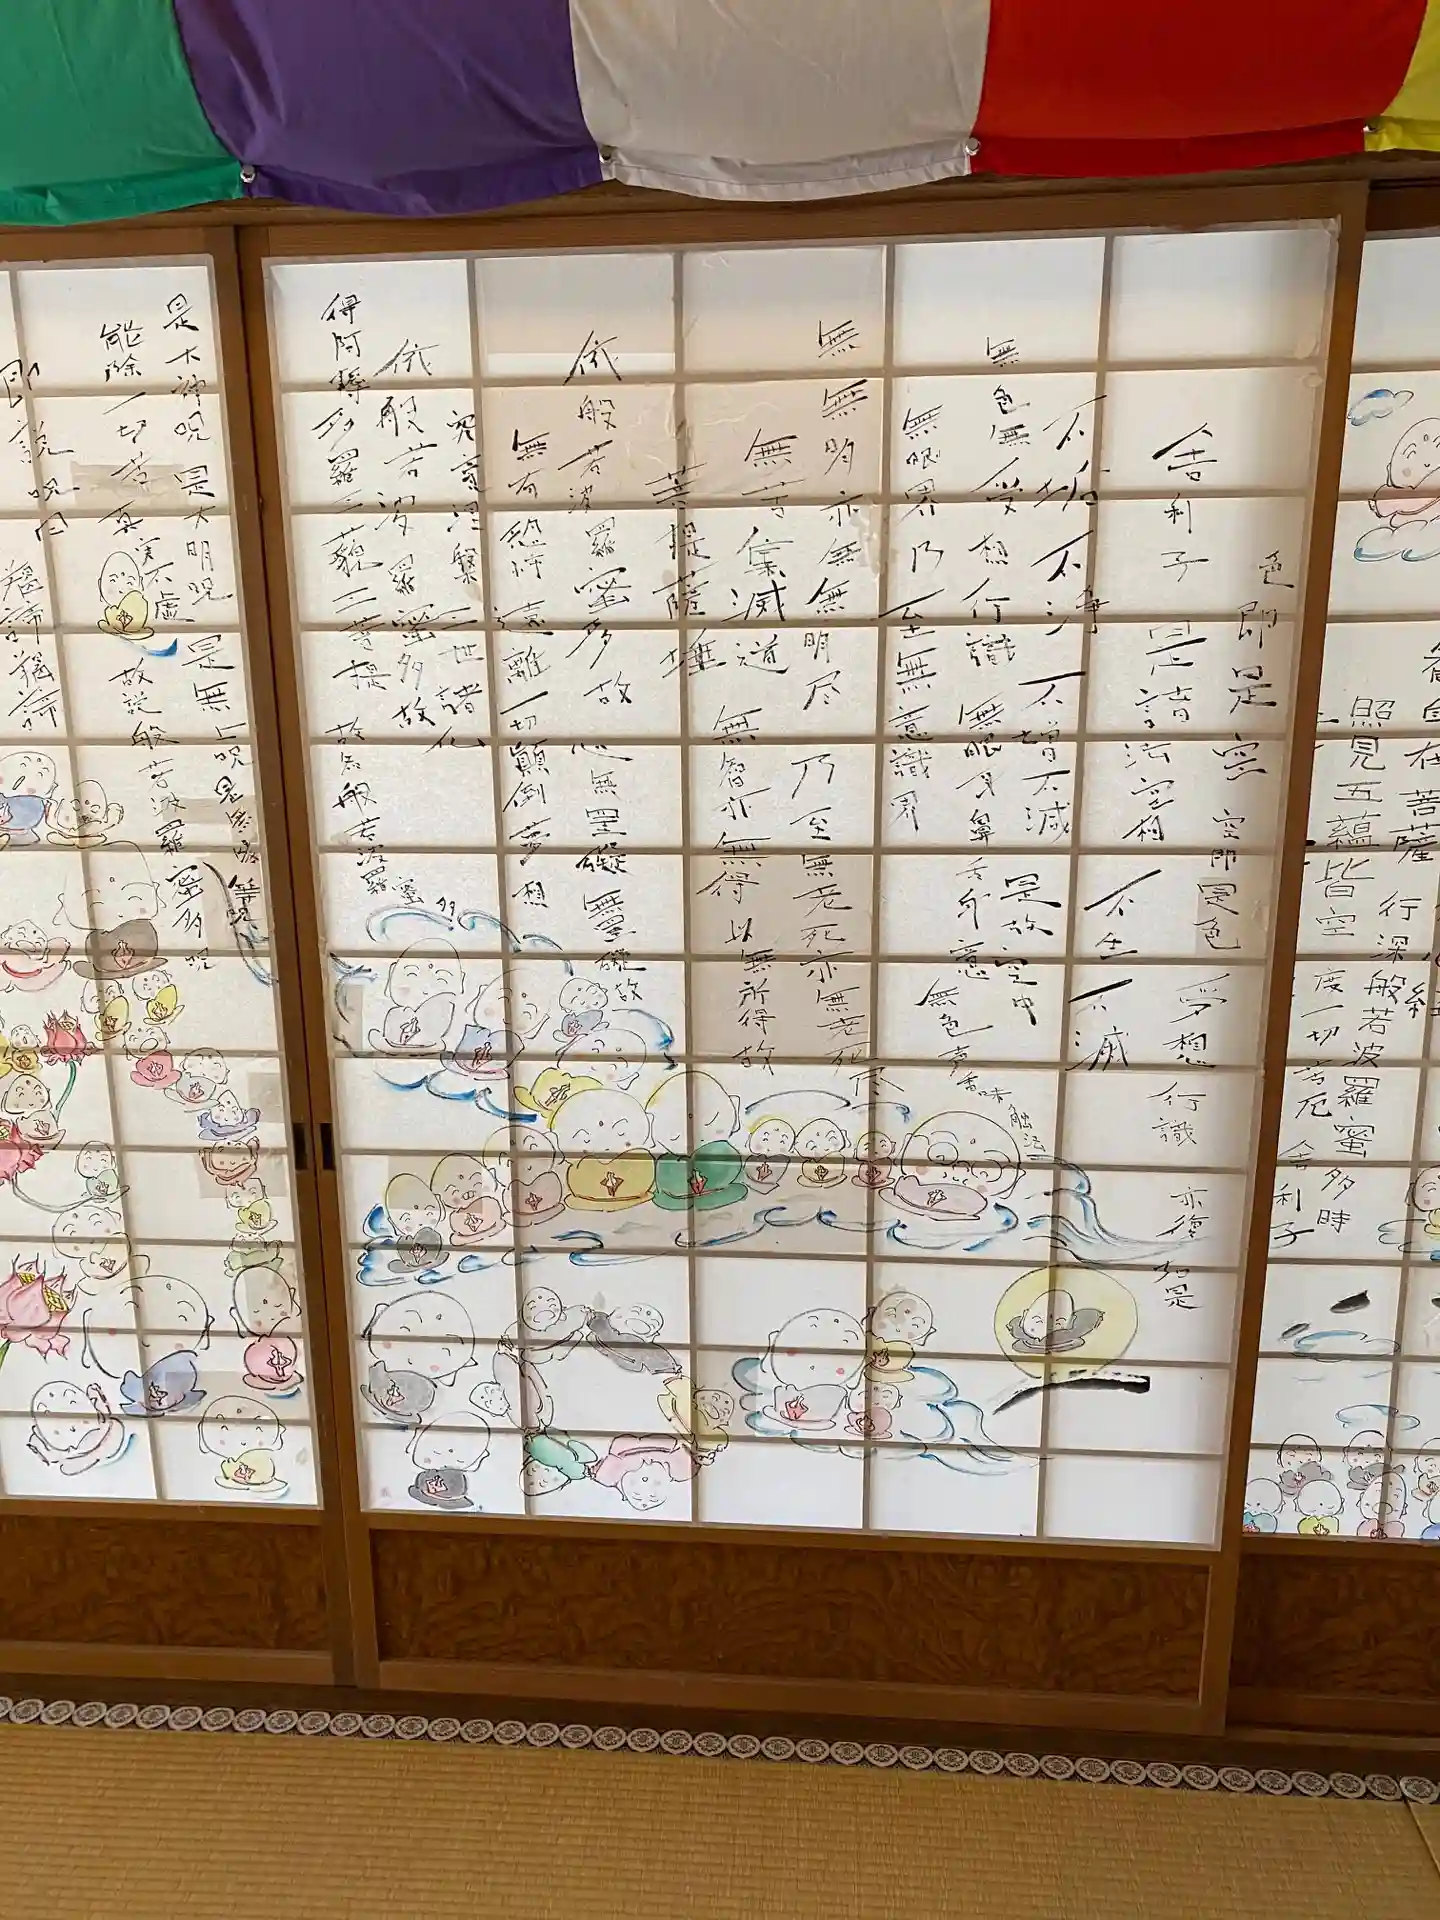 観自在菩薩 行深般若波羅蜜多時
照見五蘊皆空 度一切苦厄 舎利子
色即是空 空即是色 受想行識 亦復如是
舎利子 是諸法空相
不生不滅
不垢不浄 不増不減 是故空中
無色 無受想行識 無眼耳鼻舌身意 無色声香味触法
無眼界 乃至無意識界
無無明亦無無明尽 乃至無老死亦無老死尽
無苦集滅道 無智亦無得 以無所得故
菩提薩埵
依般若波羅蜜多故 心無罣礙 無罣礙故
無有恐怖 遠離一切顛倒夢想
究竟涅槃 三世諸仏
依般若波羅蜜多故
得阿耨多羅三藐三菩提 故知般若波羅蜜多
是大神呪 是大明呪 是無上呪 是無等等呪
能除一切苦 真実不虚 故説般若波羅蜜多呪
即説呪曰 羯諦羯諦